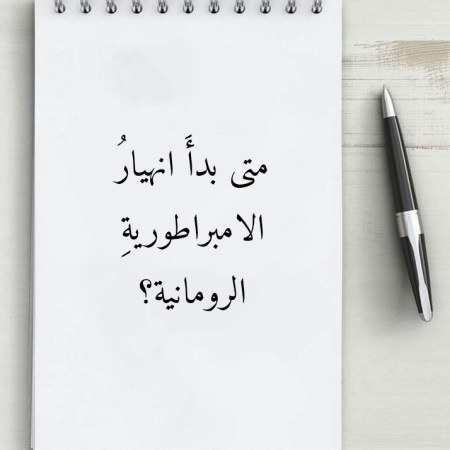 متى بدأَ انهيارُ
الامبراطوريةِ
الرومانية؟